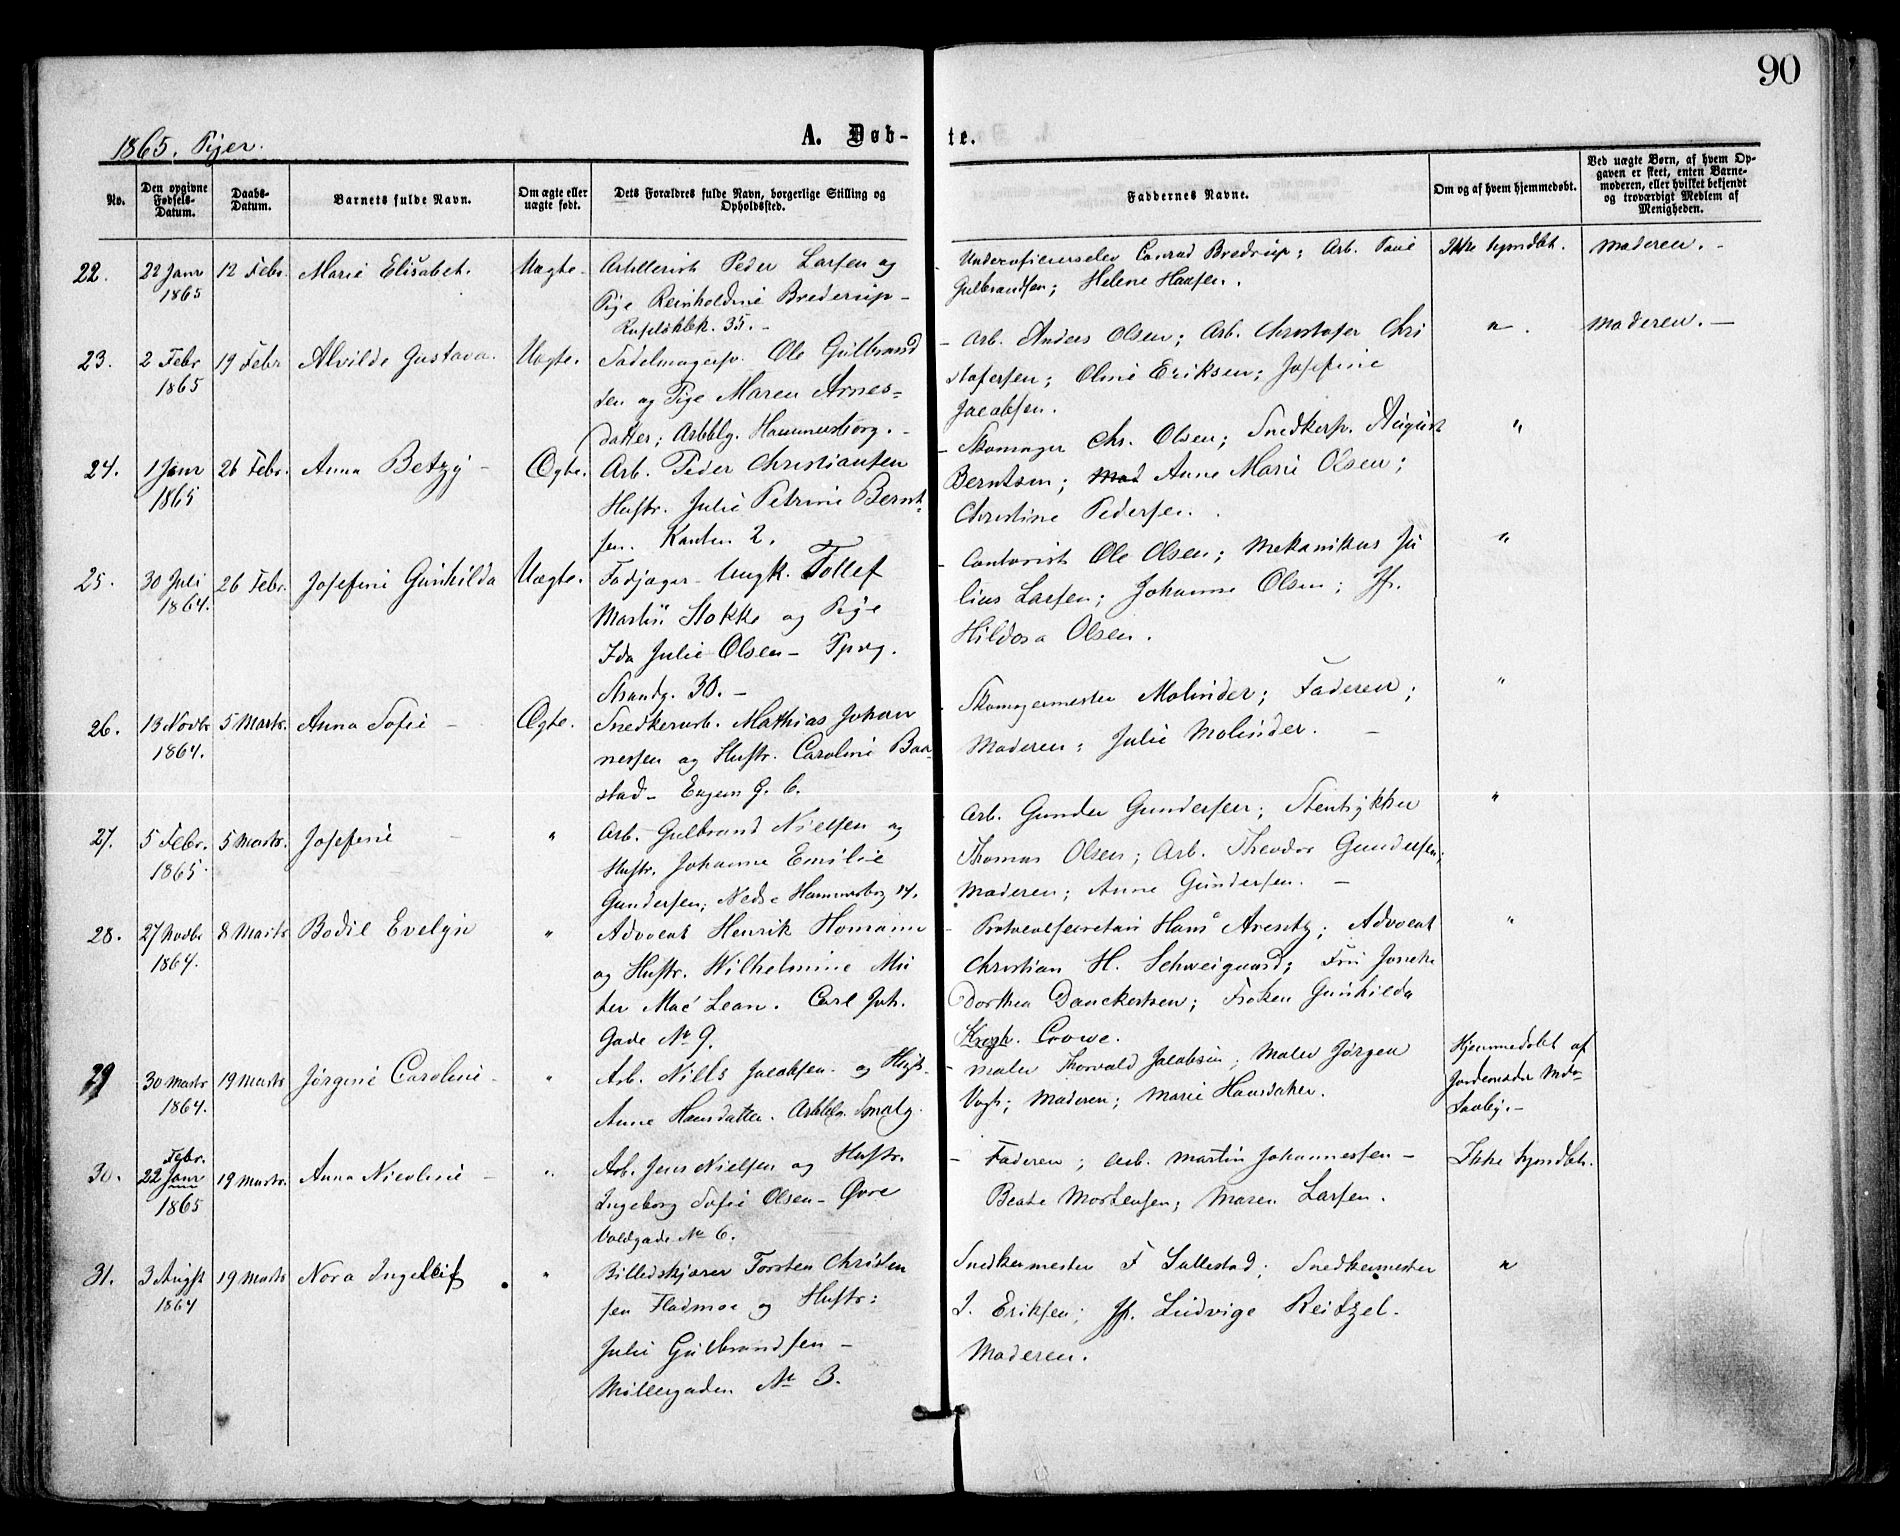 90
1865. Piger.
A. Døb-te.
No.
Den opgivne Fødsels-Datum.
Daabs-Datum.
Barnets fulde Navn.
Om ægte eller uægte født.
Dets Forældres fulde Navn, borgerlige Stilling og Opholdssted.
Faddernes Navne.
Om og af hvem hjemmedøbt.
Ved uægte Børn, af hvem Opgaven er skeet, enten Barnemoderen, eller hvilket bekjendt og troværdigt Medlem af Menigheden.
22. 22 Janr 1865 12 Febr. Marie Elisabet. Uægte.
Artillerist Peder Larsen og
Pige Reinholdine Brederup -
35. -
Underofficerselev Conrad Bredrup; Arb. Paul
Gulbrandsen; Helene Hansen.
Ikke hjmdbt. Moderen. -
23. 2 Febr 1865 19 Febr Alvilde Gustava. Uægte.
Sadelmagersv. Ole Gulbrand
sen og Pige Maren Arnes-
datter; Arbblg. Hammersborg. -
- Arb. Anders Olsen; Arb. Christofer Chri
stofersen; Oline Eriksen; Josefine
Jacobsen.
" Moderen. -
24. 1 Janr 1865 26 Febr. Anna Betzy - Ægte.
Arb. Peder Christiansen
Hustr. Julie Petrine Bernt-
sen. 2.
- Skomager Chr. Olsen; Snedkersv. August
Berntsen; Mad Anne Marie Olsen;
Christine Pedersen.
"
25. 30 Juli 1864. 26 Febr. Josefine Gunhilda Uægte.
Fodjæger Ungk. Tollef
Martin Stokke og Pige
Ida Julie Olsen -
Strandg. 30. -
- Contorist Ole Olsen; Mekanikus Ju
lius Larsen; Johanne Olsen; Jfr.
Hildora Olsen.
"
26. 13 Novbr 1864. 5 Marts. Anna Sofie - Ægte.
Snedkerarb. Mathias Johan
nessen og Hustr. Caroline Baa-
stad - Eugens G. 6.
Skomagermester Molinder; Faderen;
Moderen; Julie Molinder. -
"
27. 5 Febr. 1865. 5 Marts. Josefine - "
Arb. Gulbrand Nielsen og
Hustr. Johanne Emilie
Gundersen; Nedre Hammersborg 14.
Arb. Gunder Gundersen; Stentrykker
Thomas Olsen; Arb. Theodor Gundersen;
Moderen; Anne Gundersen. -
"
28. 27 Novbr 1864. 8 Marts Bodil Evelyn "
Advocat Henrik Homann
og Hustr. Wilhelmine
Mac Lean. Carl Joh.
Gade No 9.
- Protocolsecretair Hans Aresty; Advocat
Christian H. Schweigaard; Fru
Dorthea Danckertsen; Frøken Gunhilda
Kregh. Coowe.
"
29 30 Marts 1864. 19 Marts Jørgine Caroline - "
Arb. Nills Jacobsen og Hust.
Anne Hansdatter. Arbblg. Smalg.
- Maler Thorvald Jacobsen; Maler Jørgen
Vogt; Moderen; Marie Hansdatter.
Hjemmedøbt af
Jordemoder Md.
30. Febr. 22 Janr 1865 19 Marts. Anna Nicoline - "
Arb. Jens Nielsen og Hustr.
Ingeborg Sofie Olsen - Øvre
Voldgade No 6.
- Faderen; Arb. Martin Johannessen -
Beate Mortensen; Maren Larsen.
Ikke hjmdbt.
31. 3 Augst 1864 19 Marts Nora Ingeleif "
Billedskjærer Torsten Christen
sen Fladmoe og Hustr:
Julie Gulbrandsen -
Møllergaden No 3.
Snedkermester F Sallestad; Snedkermester
J. Eriksen; Jfr. Ludvige Reitzel.
Moderen.
"